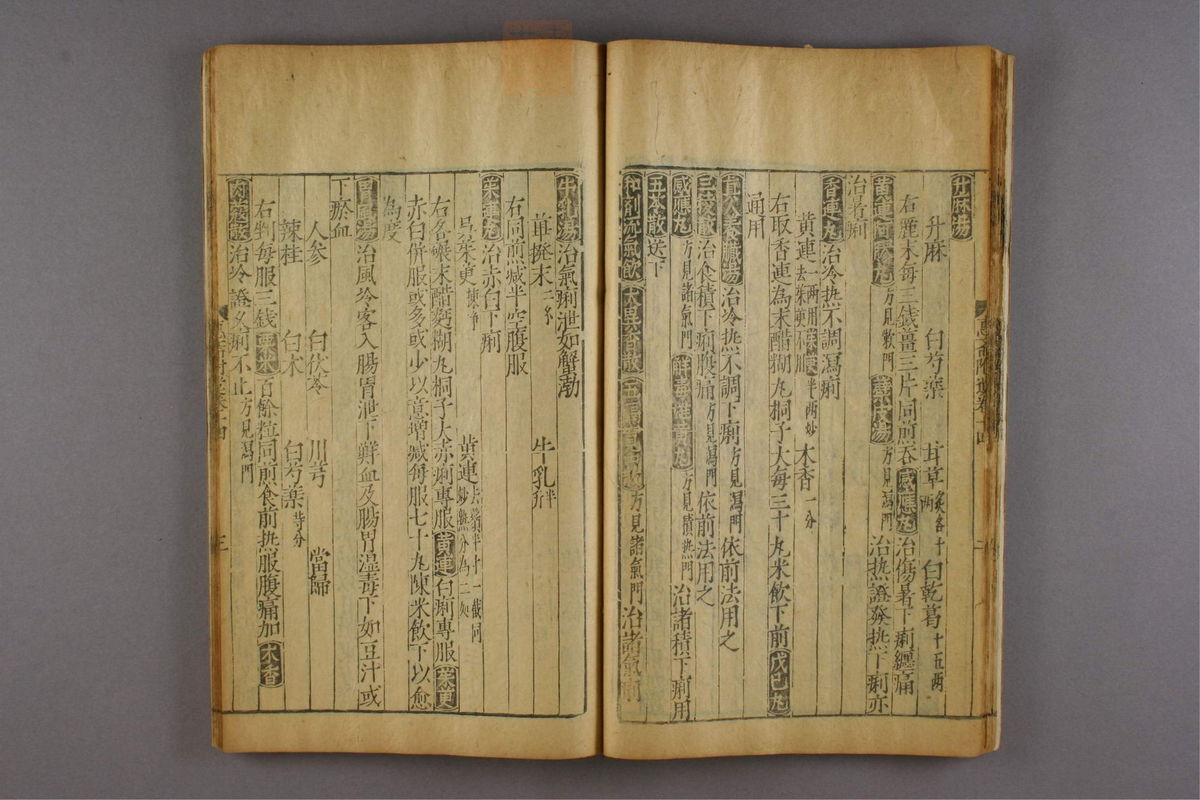 升麻湯
升麻 白芍藥 甘草炙各十兩 白乾葛十五兩
右麄末每三錢薑三片同煎吞感應丸治傷暑下痢纏痛
黃連阿膠丸方見嗽門 薷茯湯方見瀉門 治熱證發熱下痢亦
治暑痢
香連丸治冷熱不調瀉痢
黃連一兩用茱萸半兩炒去茱萸不用 木香一分
右取香連為末醋糊丸桐子大每三十丸米飲下前戊巳丸
通用
真人養臟湯治冷熱不調下痢方見瀉門依前法用之
三稜散治食積下痢腹痛方見瀉門依前法用之
感應丸方見諸氣門 解毒雄黃丸方見積熱門 治諸積下痢用
五苓散送下
和劑流氣飲 方見諸氣門 治諸氣痢
牛乳湯治氣痢泄如蟹渤
蓽撥末二錢 牛乳半升
右同煎減半空腹服
茱連丸治赤白下痢
吳茱萸揀淨 黃連
右各碾末醋麪糊丸桐子大赤痢專服黃連白痢專服茱萸
赤白併服或多或少以意增減每服七十丸陳米飲下以愈
為度
胃風湯治風冷客入腸胃泄下鮮血及腸胃湿毒下如豆汁或
下瘀血
人參 白伏苓 川芎 當歸
辣桂 白朮 白芍藥等分
右剉每服三錢粟米百餘粒同煎食前熱服腹痛加木香
肉蔻散治冷證久痢不止方見瀉門